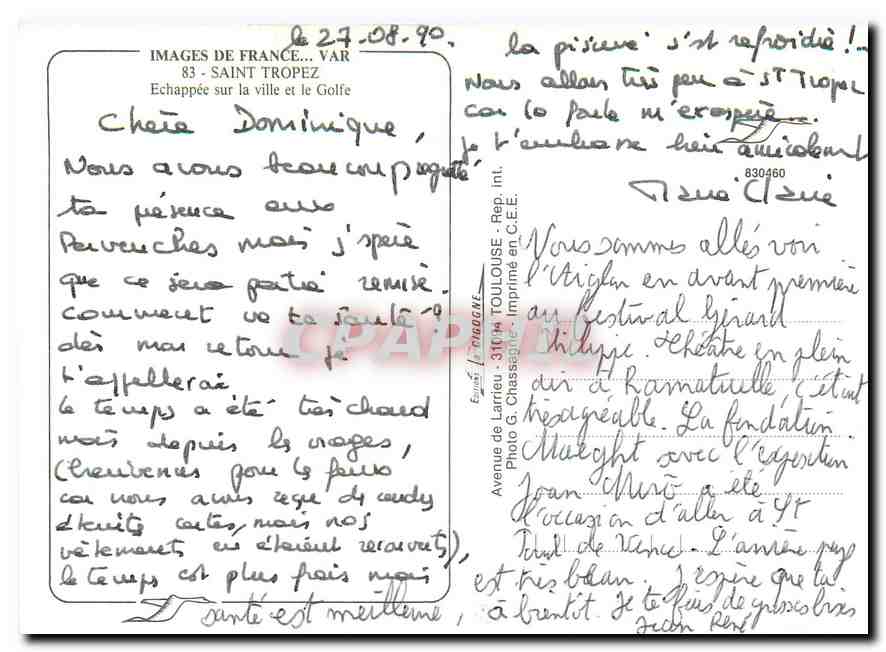 le 27-08-90.
IMAGES DE FRANCE... VAR
83 - SAINT TROPEZ
Echappée sur la ville et le Golfe
Chère Dominique,
Nous avons beaucoup regretté
ta présence aux
Pervenches mais j'spère
que ce sera partie remise.
Comment va ta santé ?
dès mon retour je
t'appellerai
le temps a été très chaud
mais depuis les orages,
(heureux pour les feux
car nous avons reçu des cendres
éteintes certes, mais nos
vêtements en étaient recouverts),
le temps est plus frais mais
la piscine s'est refroidie !..
Nous allons très peu à St Tropez
car la foule m'exaspère.
je t'embrasse bien amicalement
Marie Claire
830460
Editions La CIGOGNE
Avenue de Larrieu - 31094 TOULOUSE - Rep. int.
Photo G. Chassagne - Imprimé en C.E.E.
Nous sommes allés voir
l'Aiglon en avant première
au festival Gérard
Philippe. Théâtre en plein
air à Ramatuelle, c'était
très agréable. La fondation
Maeght avec l'exposition
Joan Miró a été
l'occasion d'aller à St
Paul de Vence. L'arrière pays
est très beau. J'espère que ta
santé est meilleure, à bientôt. Je te fais de grosses bises
Jean René
CPAPHIL